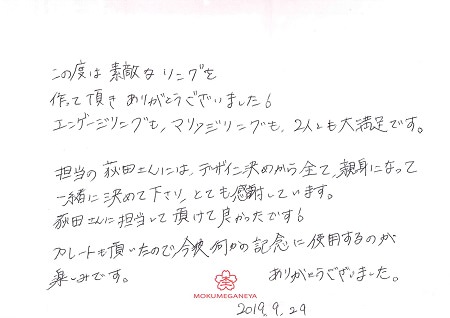 この度は素敵なリングを
作って頂きありがとうございました!
エンゲージリングも、マリッジリングも、2人とも大満足です。
担当の荻田さんには、デザイン決めから全て、親身になって
一緒に決めて下さり、とても感謝しています。
荻田さんに担当して頂けて良かったです!
プレートも頂いたので今後何かの記念に使用するのが
楽しみです。 ありがとうございました。
MOKUMEGANEYA
2019. 9. 29